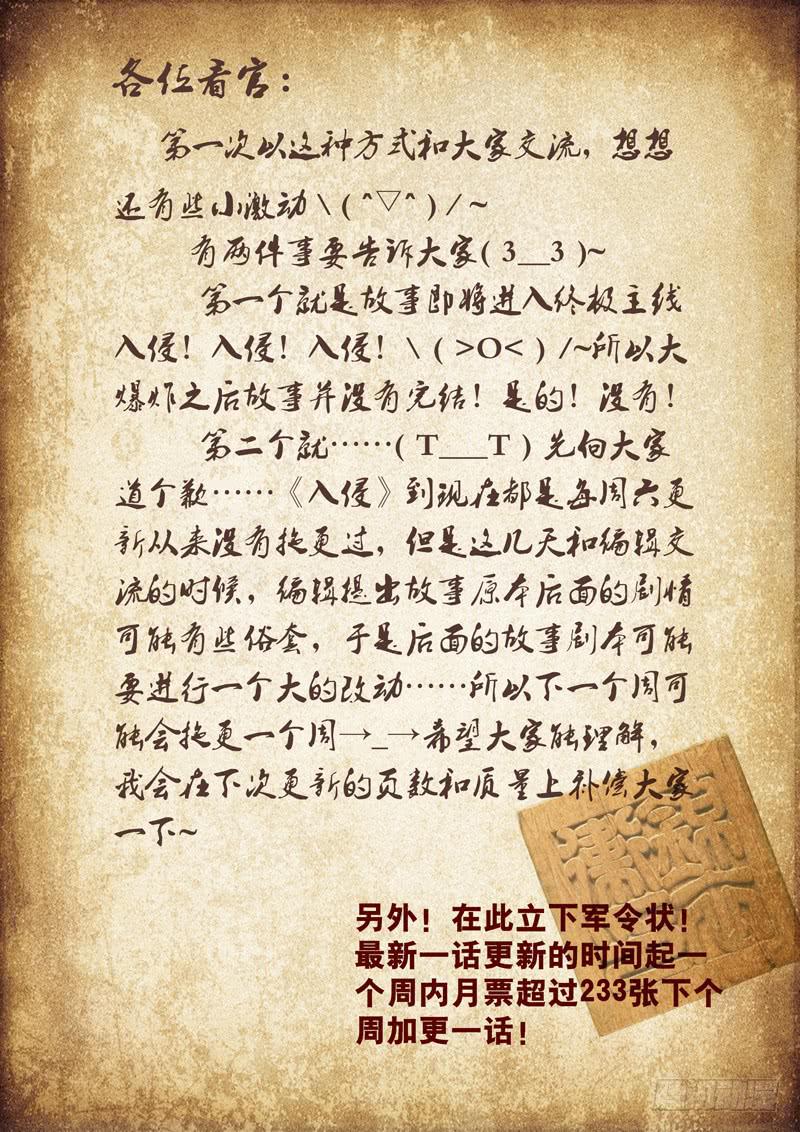 各位看官：
第一次以这种方式和大家交流，想想
还有些小激动\ ( ^▽^ ) /~
有两件事要告诉大家( 3__3 )~
第一个就是故事即将进入终极主线
入侵！入侵！入侵！\ ( >O< ) /~所以大
爆炸之后故事并没有完结！是的！没有！
第二个就……( T___T ) 先向大家
道个歉……《入侵》到现在都是每周六更
新从来没有拖更过，但是这几天和编辑交
流的时候，编辑提出故事原本后面的剧情
可能有些俗套，于是后面的故事剧本可能
要进行一个大的改动……所以下一个周可
能会拖更一个周→_→希望大家能理解，
我会在下次更新的页数和质量上补偿大家
一下~
另外！在此立下军令状！
最新一话更新的时间起一
个周内月票超过233张下个
周加更一话！